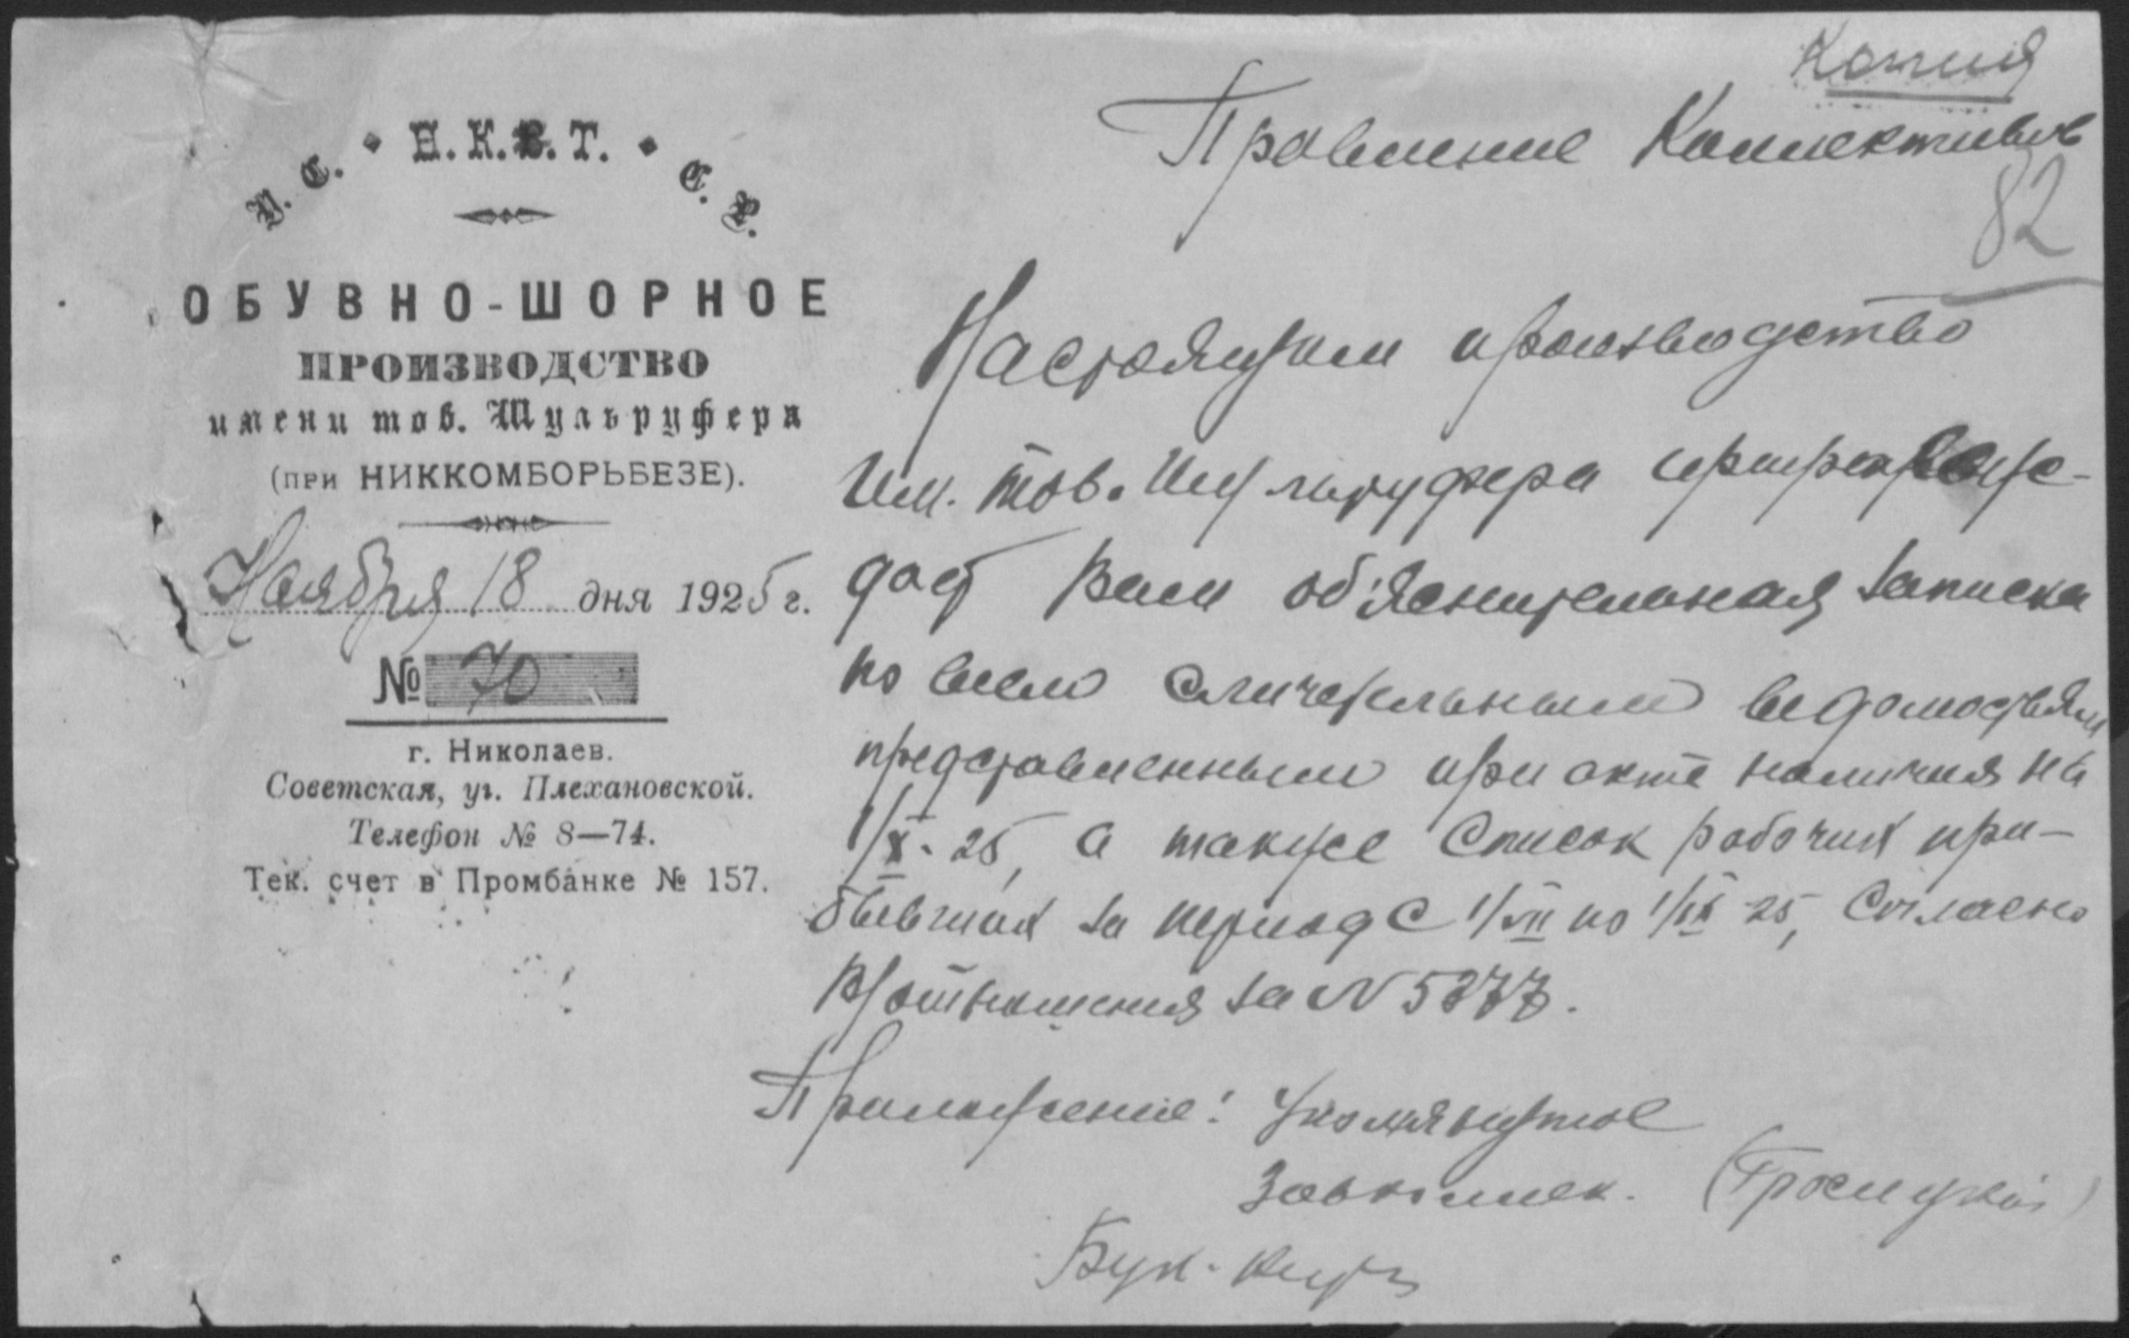 У. С. • Н. К. В. Т. • С. Р.
ОБУВНО-ШОРНОЕ
ПРОИЗВОДСТВО
имени тов. Шульруфера
(при НИККОМБОРЬБЕЗЕ).
Ноября 18 дня 1925 г.
№ 70
г. Николаев.
Советская, уг. Плехановской.
Телефон № 8—74.
Тек. счет в Промбанке № 157.
Копия
Правление Коллективов
82
Настоящим производство
им. тов. Шульруфера препровож-
дает Вам об'яснительная записка
по всем сличительным ведомостям
представленным при акте наличия на
1/X-25, а также список рабочих при-
бывших за период с 1/VII по 1/IX 25, согласно
отношения за N 5377.
Приложение: Упомянутое
Завколлек.
Бух.